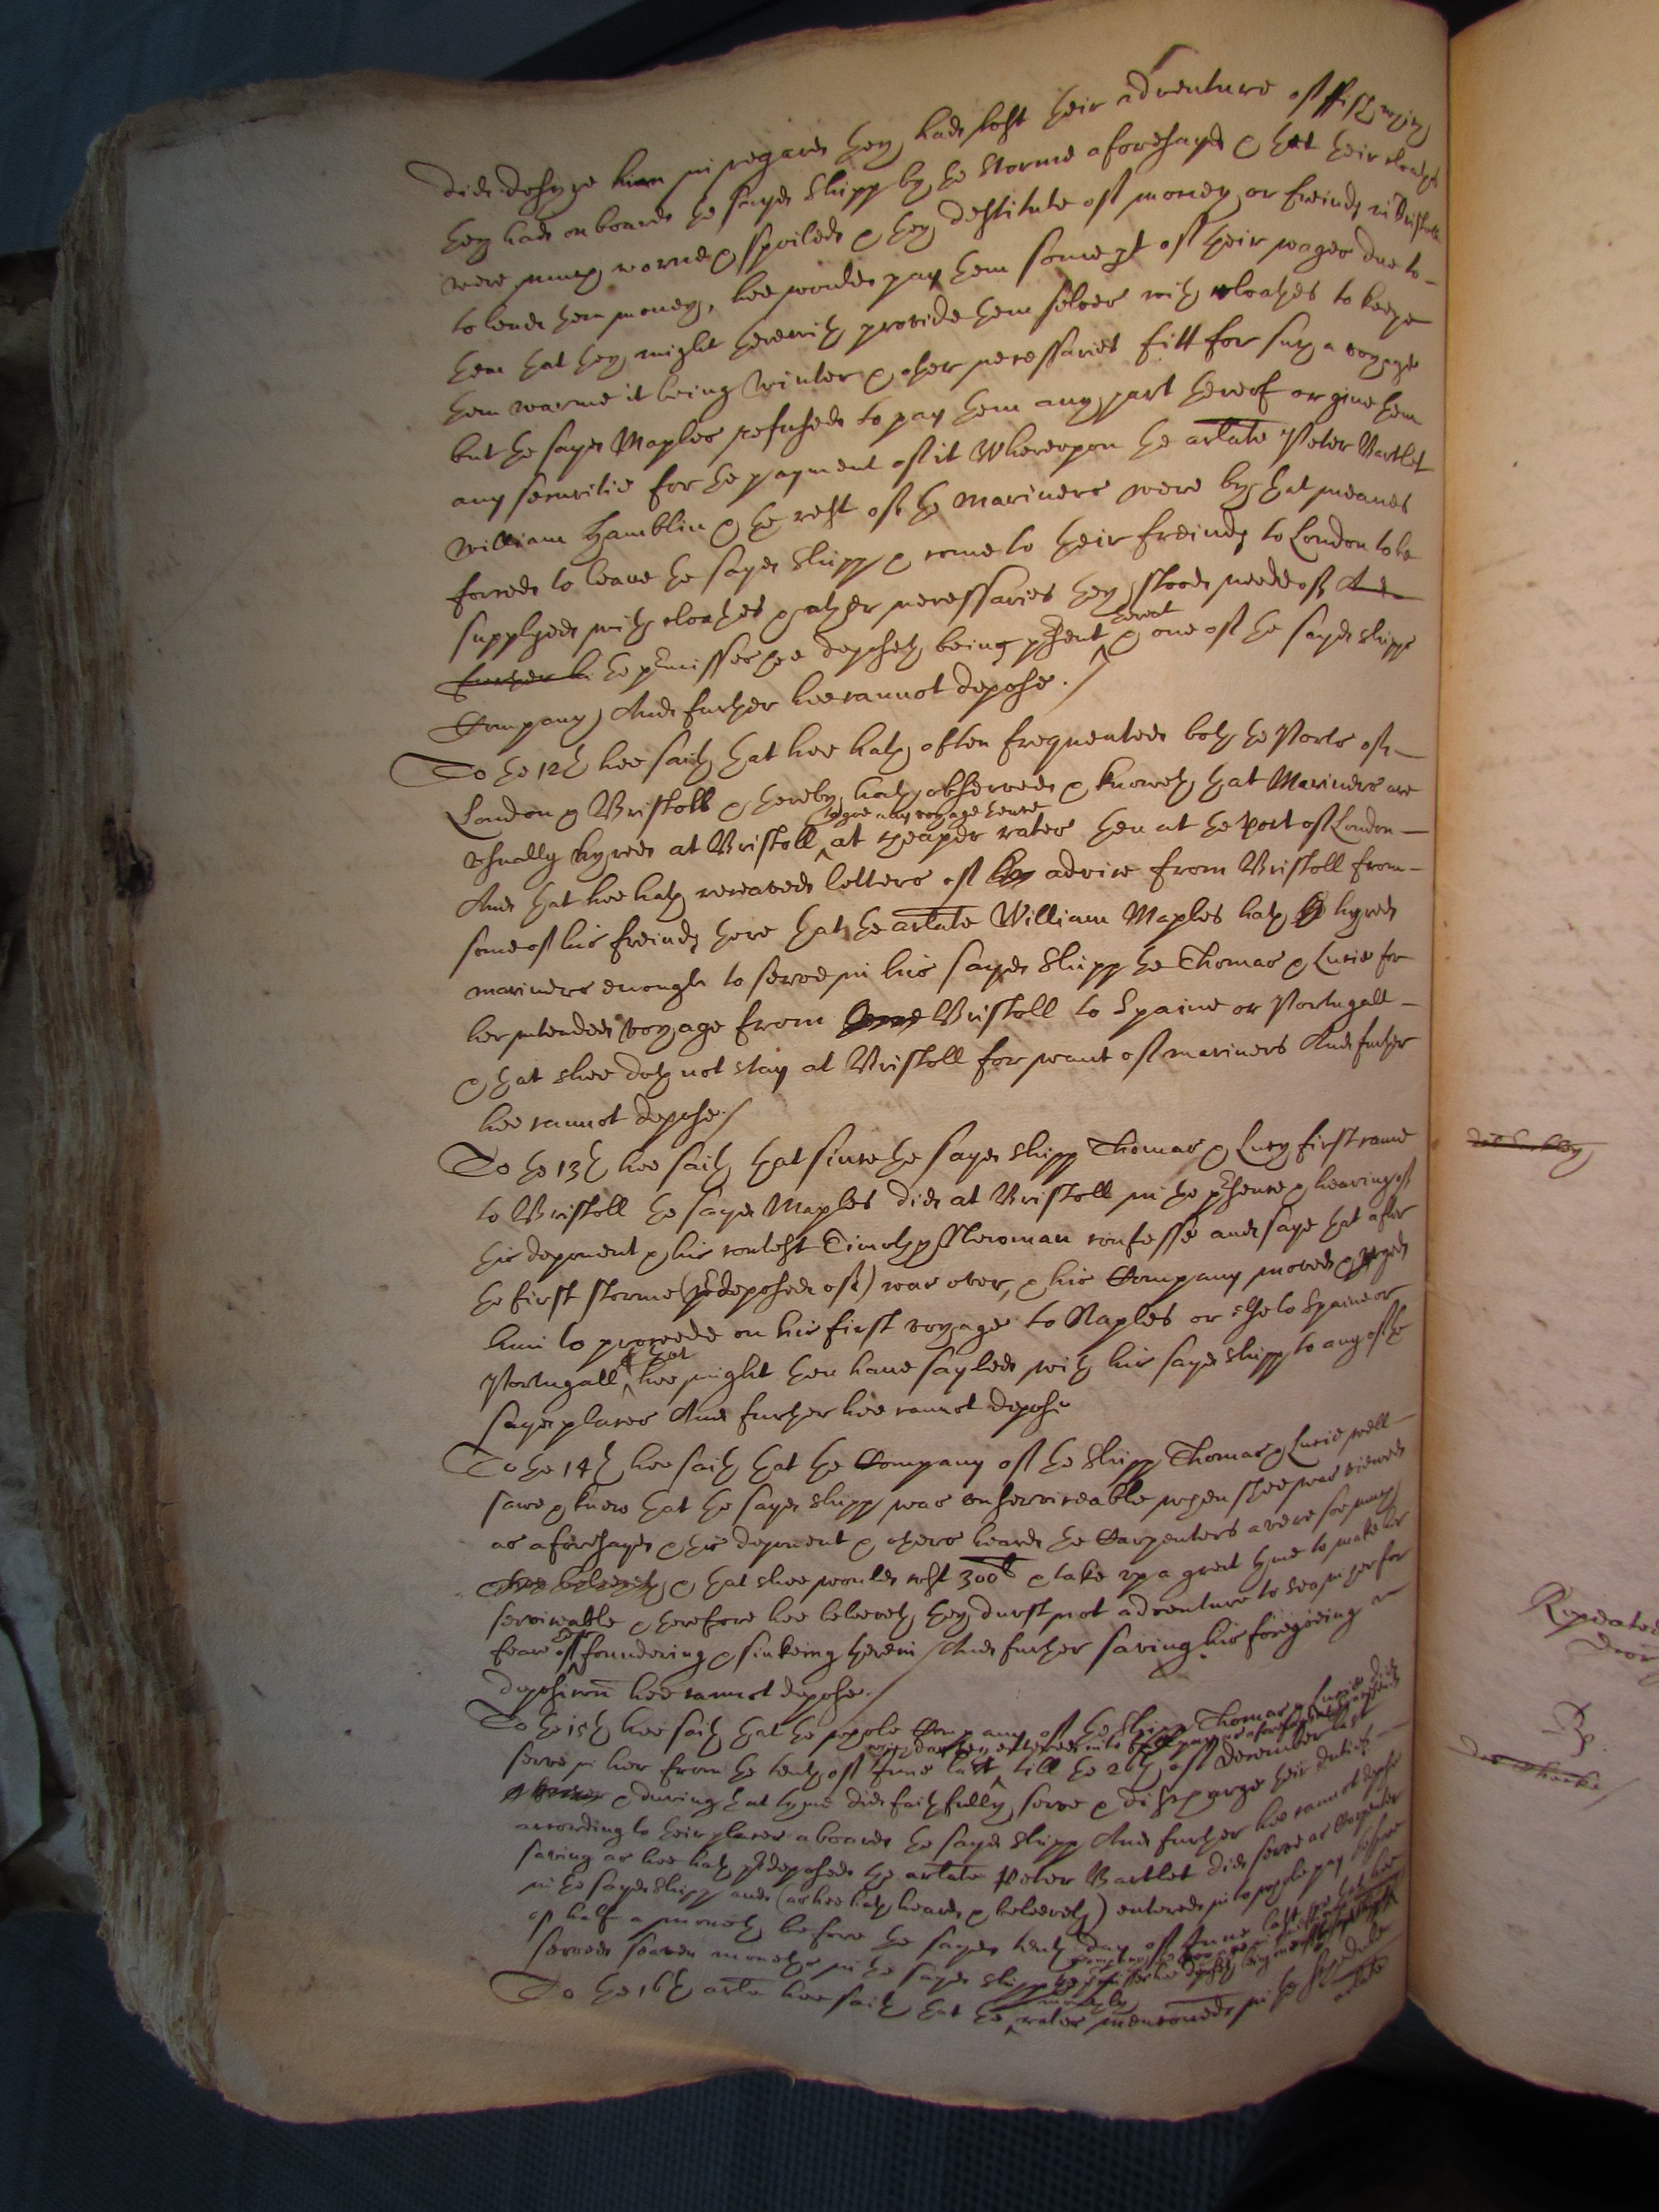 did desyre him in regard they had lost their adventure of fish which
they had on board the sayd shipp by the storme aforesayd & that their cloaths
were much worne & spoiled & they destitute of money or freinds in Bristoll
to lend them money, hee would pay them some pt of their wages due to
them that they might therewith provide them selves with cloathes to keepe
them warme it being Winter & other necessaries fitt for such a voyage
but the sayd Maples refused to pay them any part thereof or give them
any securitie for the payment of it Whereupon the arlate Peter Bartlet
William Hamblin & the rest of the mariners were by that meanes
forced to leave the sayd shipp & come to their freinds to London to be
supplyed with cloathes & other necessaries they stood neede of And
further the premisses hee deposeth being present thereat & one of the sayd shipps
Company And further hee cannot depose./
To the 12th hee saith that hee hath often frequented both the Ports of
London & Bristoll & thereby hath observed & knoweth that Mariners are
usually hyred at Bristoll to goe any voyage thence at cheaper rates then at the Port of London
And that hee hath receaved letters of advice from Bristoll from
some of his freinds there that the arlate William Maples hath hyred
mariners enough to serve in his sayd shipp the Thomas & Lucie for
her intended voyage from Bristoll to Spaine or Portugall
& that shee doth not stay at Bristoll for want of mariners And further
hee cannot depose./
To the 13th hee saith that since the sayd shipp Thomas & Lucy first came
to Bristoll the sayd Maples did at Bristoll in the presence & hearing of
this deponent & his contest Timothy Newman confesse and saye that after
the first storme (predeposed of) was over, & his Company moved & urged
him to proceede on his first voyage to Naples or else to Spaine or
Portugall that hee might then have sayled with his sayd shipp to any of the
sayd places And further hee cannot depose
To the 14th hee saith that the Company of the shipp Thomas & Lucie well
sawe & knew that the sayd shipp was unserviceable when shee was viewed
as aforesayd & this deponent & others heard the Carpenters averre soe much
& that shee would cost 300li & take up a great tyme to make her
serviceable & therefore hee beleeveth they durst not adventure to sea in her for
feare of foundering & sinkeing therein And further saving his foregoeing
deposicon hee cannot depose./
To the 15th hee saith that the whole Company of the shipp Thomas & Lucie did
serve in her from the tenth of June last which day they entered into till the 26th of December last
& during that tyme did faithfully serve & discharge their duties
according to their places aboard the sayd shipp And further hee cannot depose
saving as hee hath predeposed the arlate Peter Bartlet did serve as Carpenter
in the sayd shipp and (as hee hath heard & beleeveth) entered into whole pay
or half a moneth before the sayd tenth day of June last
served seaven moneths in the sayd shipp
To the 16th arle hee saith that the monethly rates mentioned in the schedule
arlate
Repeated